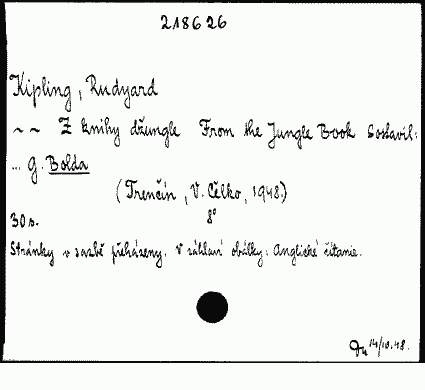 218626
Kipling, Rudyard
~ ~ Z knihy džungle From the Jungle Book Sostavil:
... G. Bolda
(Trenčín, V. Čelko, 1948)
30 s. 8°
Stránky v sazbě přeházeny. V záhlaví obálky: Anglické čítanie.
14/10.48.